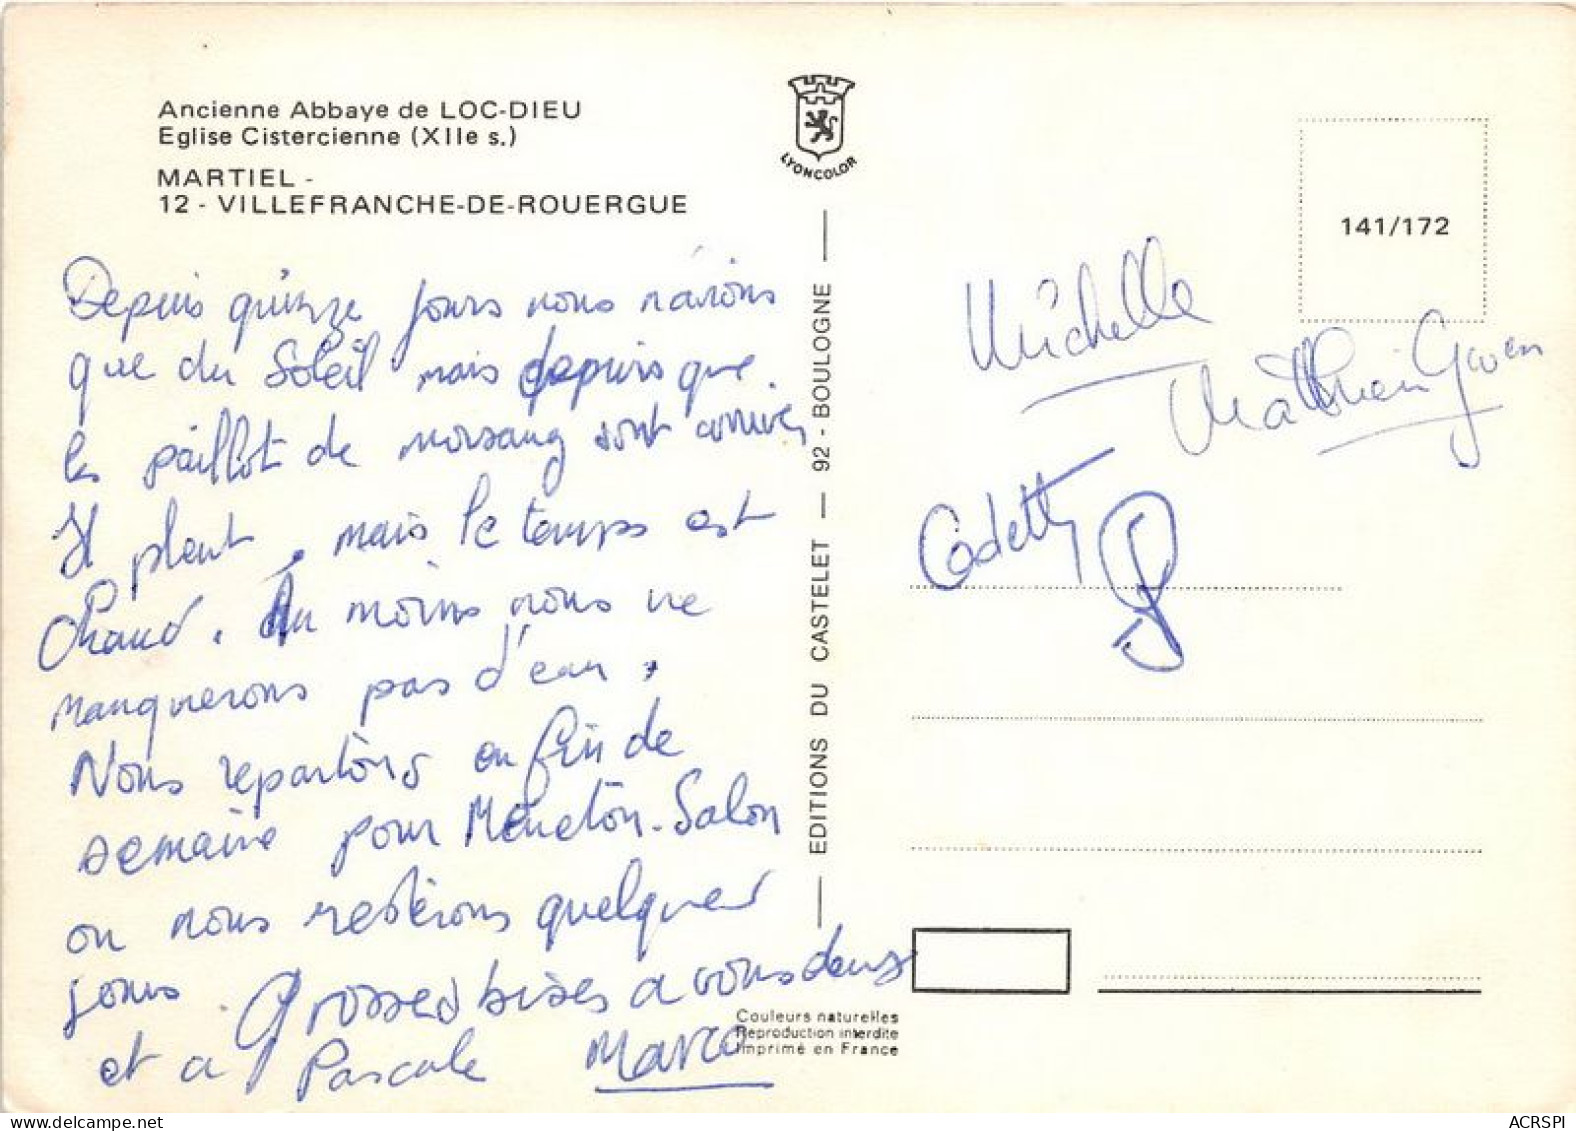 Ancienne Abbaye de LOC-DIEU
Eglise Cistercienne (XIIe s.)
MARTIEL -
12 - VILLEFRANCHE-DE-ROUERGUE
Depuis quinze jours nous n'avions
que du Soleil mais depuis que
les paillot de morsang sont arrivés
Il pleut, mais le temps est
Chaud. Au moins nous ne
manquerons pas d'eau.
Nous repartons en fin de
semaine pour Meneton-Salon
ou nous resterons quelques
jours. Grosses bises a vous deux
et a Pascale Marco
LYONCOLOR
EDITIONS DU CASTELET — 92 - BOULOGNE
141/172
Michelle
Matthieu Gwen
Cadetty
Couleurs naturelles
Reproduction interdite
Imprimé en France
ACRSPI